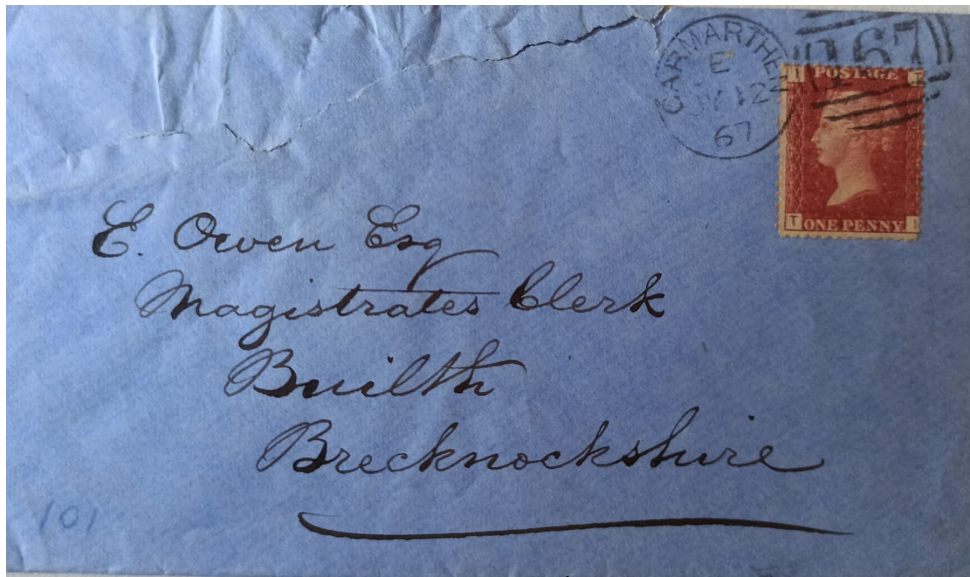 CARMARTHEN
E
12
67
I
POSTAGE
T
T
ONE PENNY
I
E. Owen Esq
Magistrates Clerk
Builth
Brecknockshire
101